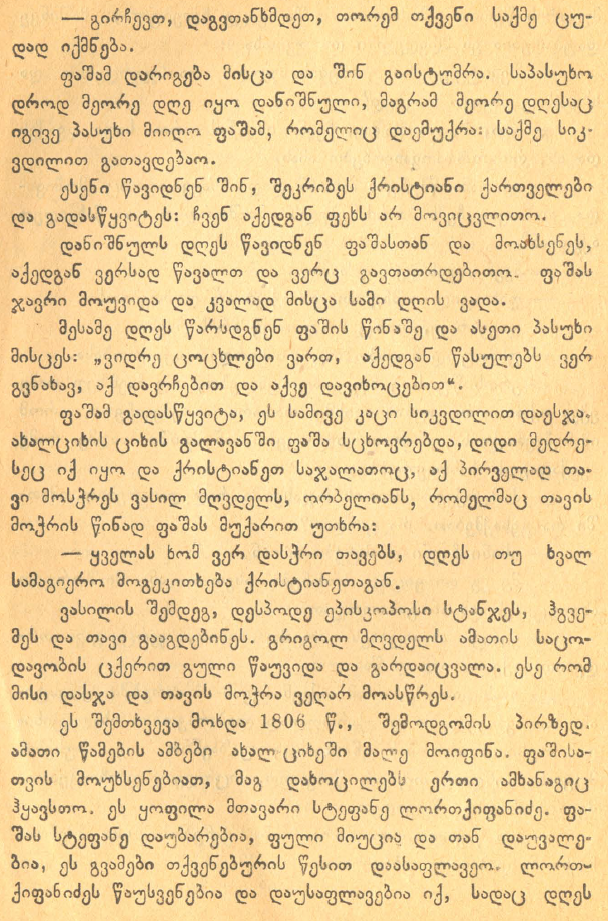 — გირჩევთ, დაგვთანხმდეთ, თორემ თქვენი საქმე ცუ-
დად იქმნება.
ფაშამ დარიგება მისცა და შინ გაისტუმრა. საპასუხო
დროდ მეორე დღე იყო დანიშნული, მაგრამ მეორე დღესაც
იგივე პასუხი მიიღო ფაშამ, რომელიც დაემუქრა: საქმე სიკ-
ვდილით გათავდებაო.
ესენი წავიდნენ შინ, შეკრიბეს ქრისტიანი ქართველები
და გადასწყვიტეს: ჩვენ აქედგან ფეხს არ მოვიცვლითო.
დანიშნულს დღეს წავიდნენ ფაშასთან და მოახსენეს,
აქედგან ვერსად წავალთ და ვერც გავთათრდებითო. ფაშას
ჯავრი მოუვიდა და კვალად მისცა სამი დღის ვადა.
მესამე დღეს წარსდგნენ ფაშის წინაშე და ასეთი პასუხი
მისცეს: „ვიდრე ცოცხლები ვართ, აქედგან წასულებს ვერ
გვნახავ, აქ დავრჩებით და აქვე დავიხოცებით“.
ფაშამ გადასწყვიტა, ეს სამივე კაცი სიკვდილით დაესჯა.
ახალციხის ციხის გალავანში ფაშა სცხოვრებდა, დიდი მედრე-
სეც იქ იყო და ქრისტიანეთ საჯალათოც, აქ პირველად თა-
ვი მოსჭრეს ვასილ მღვდელს, ორბელიანს, რომელმაც თავის
მოჭრის წინად ფაშას მუქარით უთხრა:
— ყველას ხომ ვერ დასჭრი თავებს, დღეს თუ ხვალ
სამაგიერო მოგეკითხება ქრისტიანეთაგან.
ვასილის შემდეგ, დესპოდე ეპისკოპოსი სტანჯეს, ჰგვე-
მეს და თავი გააგდებინეს. გრიგოლ მღვდელს ამათის საცო-
დაობის ცქერით გული წაუვიდა და გარდაიცვალა. ესე რომ
მისი დასჯა და თავის მოჭრა ვეღარ მოასწრეს.
ეს შემთხვევა მოხდა 1806 წ., შემოდგომის პირზედ.
ამათი წამების ამბები ახალციხეში მალე მოიფინა. ფაშისა-
თვის მოუხსენებიათ, მაგ დახოცილებს ერთი ამხანაგიც
ჰყავსთო. ეს ყოფილა მთავარი სტეფანე ლორთქიფანიძე. ფა-
შას სტეფანე დაუბარებია, ფული მიუცია და თან დაუვალე-
ბია, ეს გვამები თქვენებურის წესით დაასაფლავეო. ლორთ-
ქიფანიძეს წაუსვენებია და დაუსაფლავებია იქ, სადაც დღეს